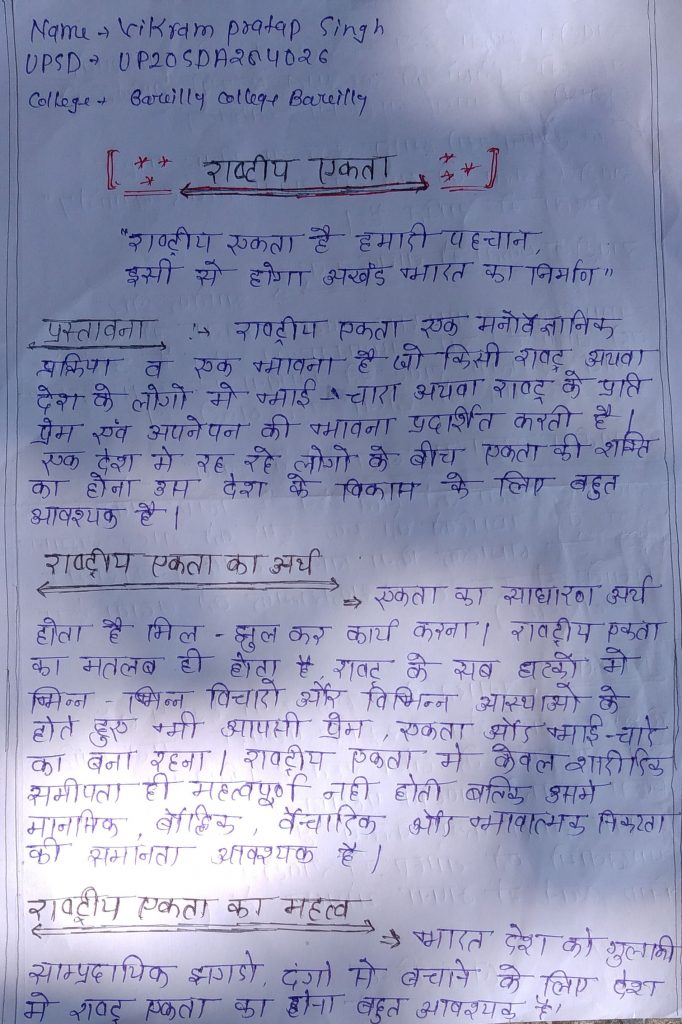 Name → Vikram pratap Singh
UPSD → UP20SDA264026
College → Bareilly college Bareilly
राष्ट्रीय एकता
"राष्ट्रीय एकता है हमारी पहचान,
इसी से होगा अखंड भारत का निर्माण"
प्रस्तावना :→ राष्ट्रीय एकता एक मनोवैज्ञानिक
प्रक्रिया व एक भावना है जो किसी राष्ट्र अथवा
देश के लोगो मे भाई-चारा अथवा राष्ट्र के प्रति
प्रेम एवं अपनेपन की भावना प्रदर्शित करती है।
एक देश मे रह रहे लोगो के बीच एकता की शक्ति
का होना उस देश के विकास के लिए बहुत
आवश्यक है।
राष्ट्रीय एकता का अर्थ
⇒ एकता का साधारण अर्थ
होता है मिल - झुल कर कार्य करना। राष्ट्रीय एकता
का मतलब ही होता है, राष्ट्र के सब घटको मे
भिन्न - भिन्न विचारो और विभिन्न आस्थाओ के
होते हुए भी आपसी प्रेम, एकता और भाई-चारे
का बना रहना। राष्ट्रीय एकता मे केवल शारीरिक
समीपता ही महत्वपूर्ण नही होती बल्कि उसमे
मानसिक, बौद्धिक, वैचारिक और भावात्मक निकटता
की समानता आवश्यक है।
राष्ट्रीय एकता का महत्व
⇒ भारत देश को गुलामी
साम्प्रदायिक झगडो, दंगो से बचाने के लिए देश
मे राष्ट्र एकता का होना बहुत आवश्यक है।